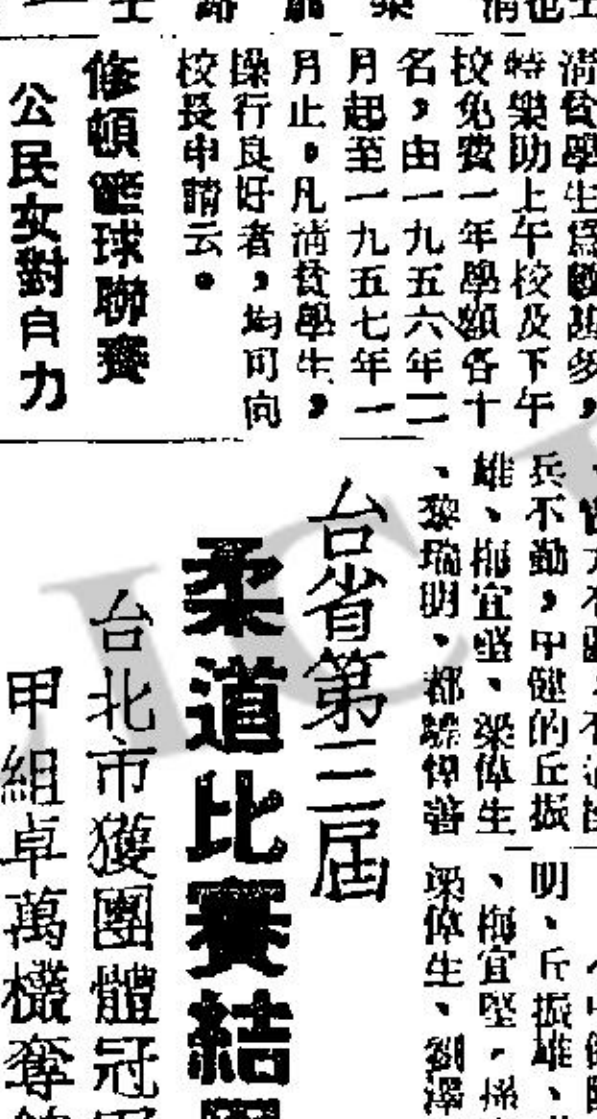 清貧學生為數甚多，
特樂助上午校及下午
校免費一年學額各十
名，由一九五六年二
月起至一九五七年一
月止。凡清貧學生，
操行良好者，均可向
校長申請云。
修頓籃球聯賽
公民女對自力
兵不勤，甲健的丘振
雄、梅宜盛、梁偉生
、黎瑞明、
明、丘振雄、
、梅宜堅，孫
梁偉生、劉澤
台省第三屆
柔道比賽結
台北市獲團體冠
甲組卓萬機奪